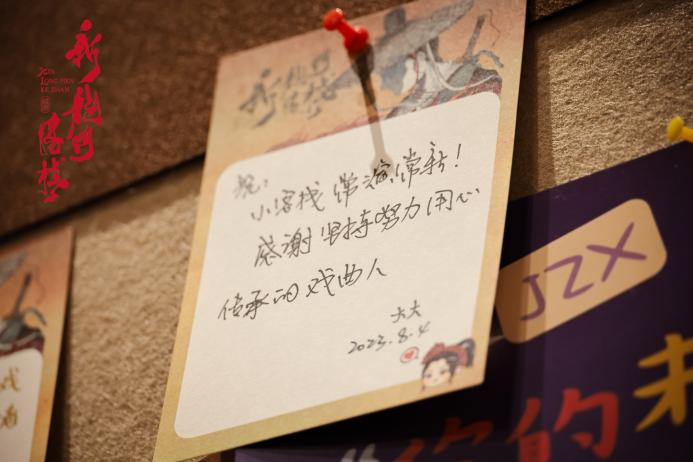 新龙门客栈
XIN
LONG MEN
KE ZHAN
新龙门客栈
祝：
小客栈 常演常新！
感谢 坚持努力用心
传承的戏曲人
大大
2023.8.4
JZX
你的